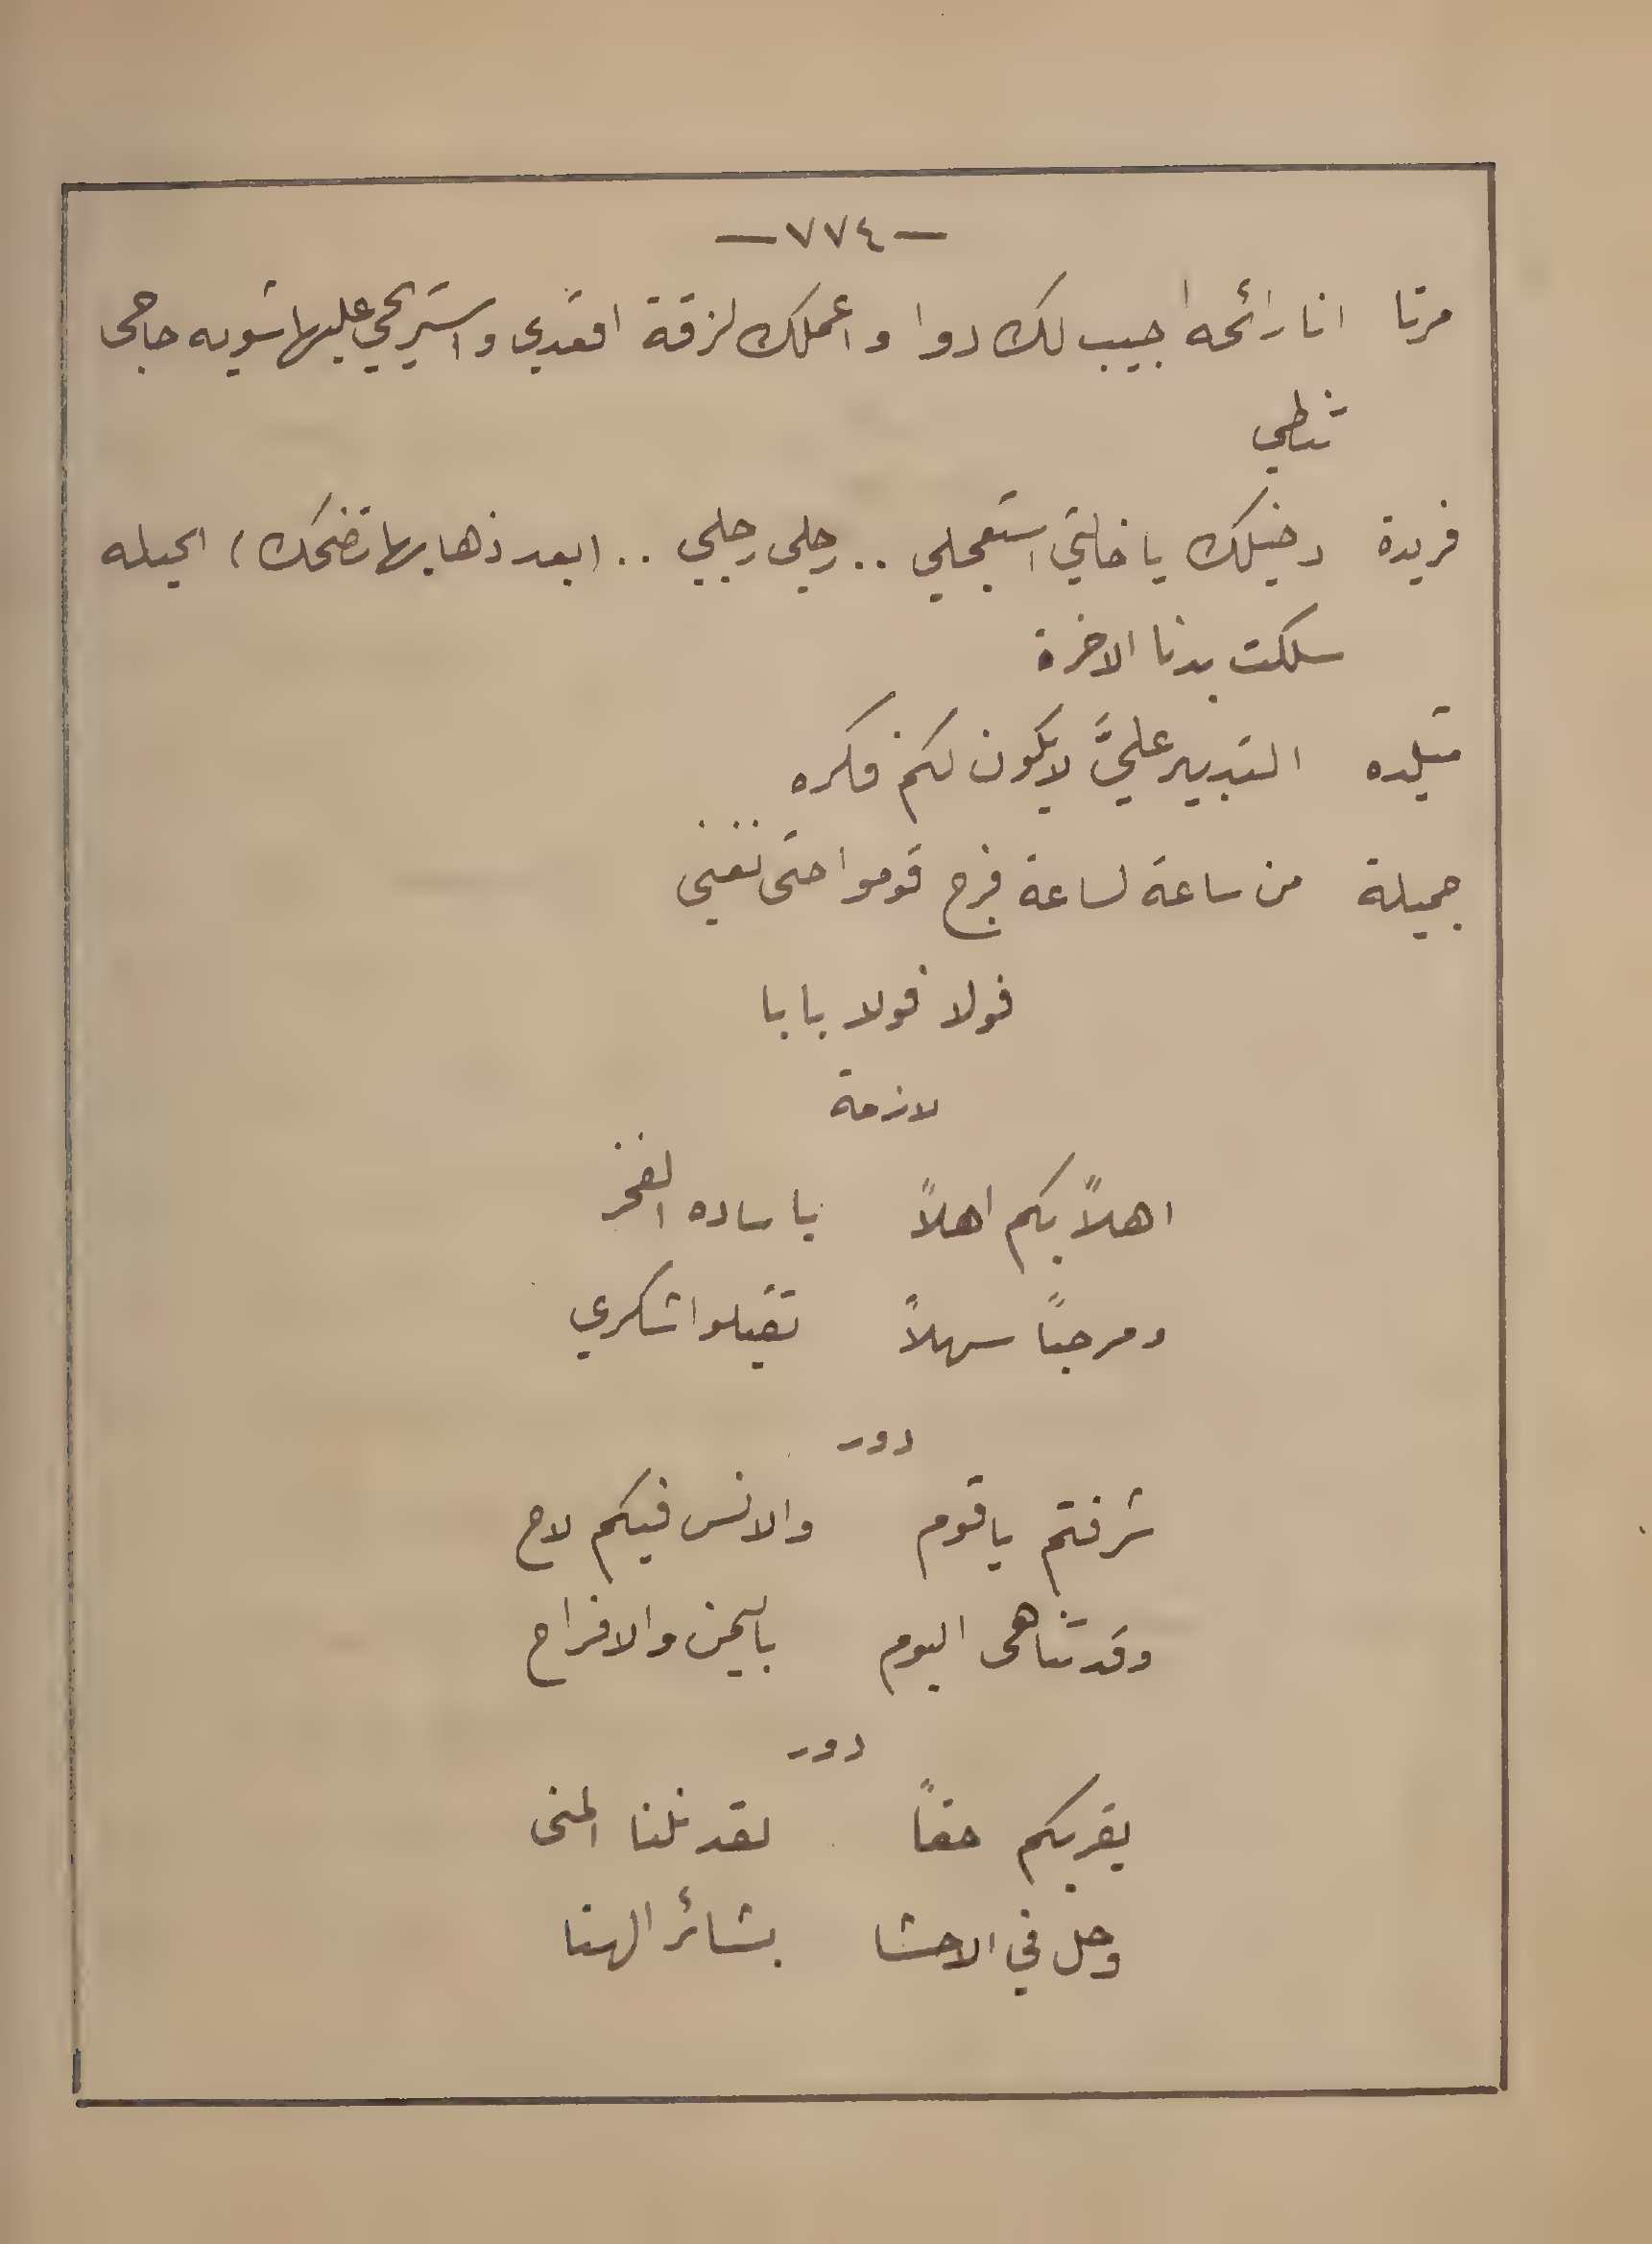 — ٧٧٤ —
مرتا انا رائحه اجيب لك دوا واعملك لزقة اقعدي واستريحي عليها شويه حاجى
تنطي
فريدة دخيلك يا خالتي استعجلي .. رجلي رجلي .. (بعد ذهابها تضحك) الحيله
سلكت بدنا الاخرة
متيلده التدبير عليَّ لا يكون لكم فكره
جميلة من ساعة لساعة فرج قوموا حتى نغني
فولا فولا بابا
لازمة
اهلاً بكم اهلاً يا ساده الفخر
ومرحباً سهلاً تقبلوا شكري
دور
شرفتم يا قوم والانس فيكم لاح
وقد تناهى اليوم باليمن والافراح
دور
بقربكم حقاً لقد نلنا المنى
وحل في الاحشا بشائر الهنا